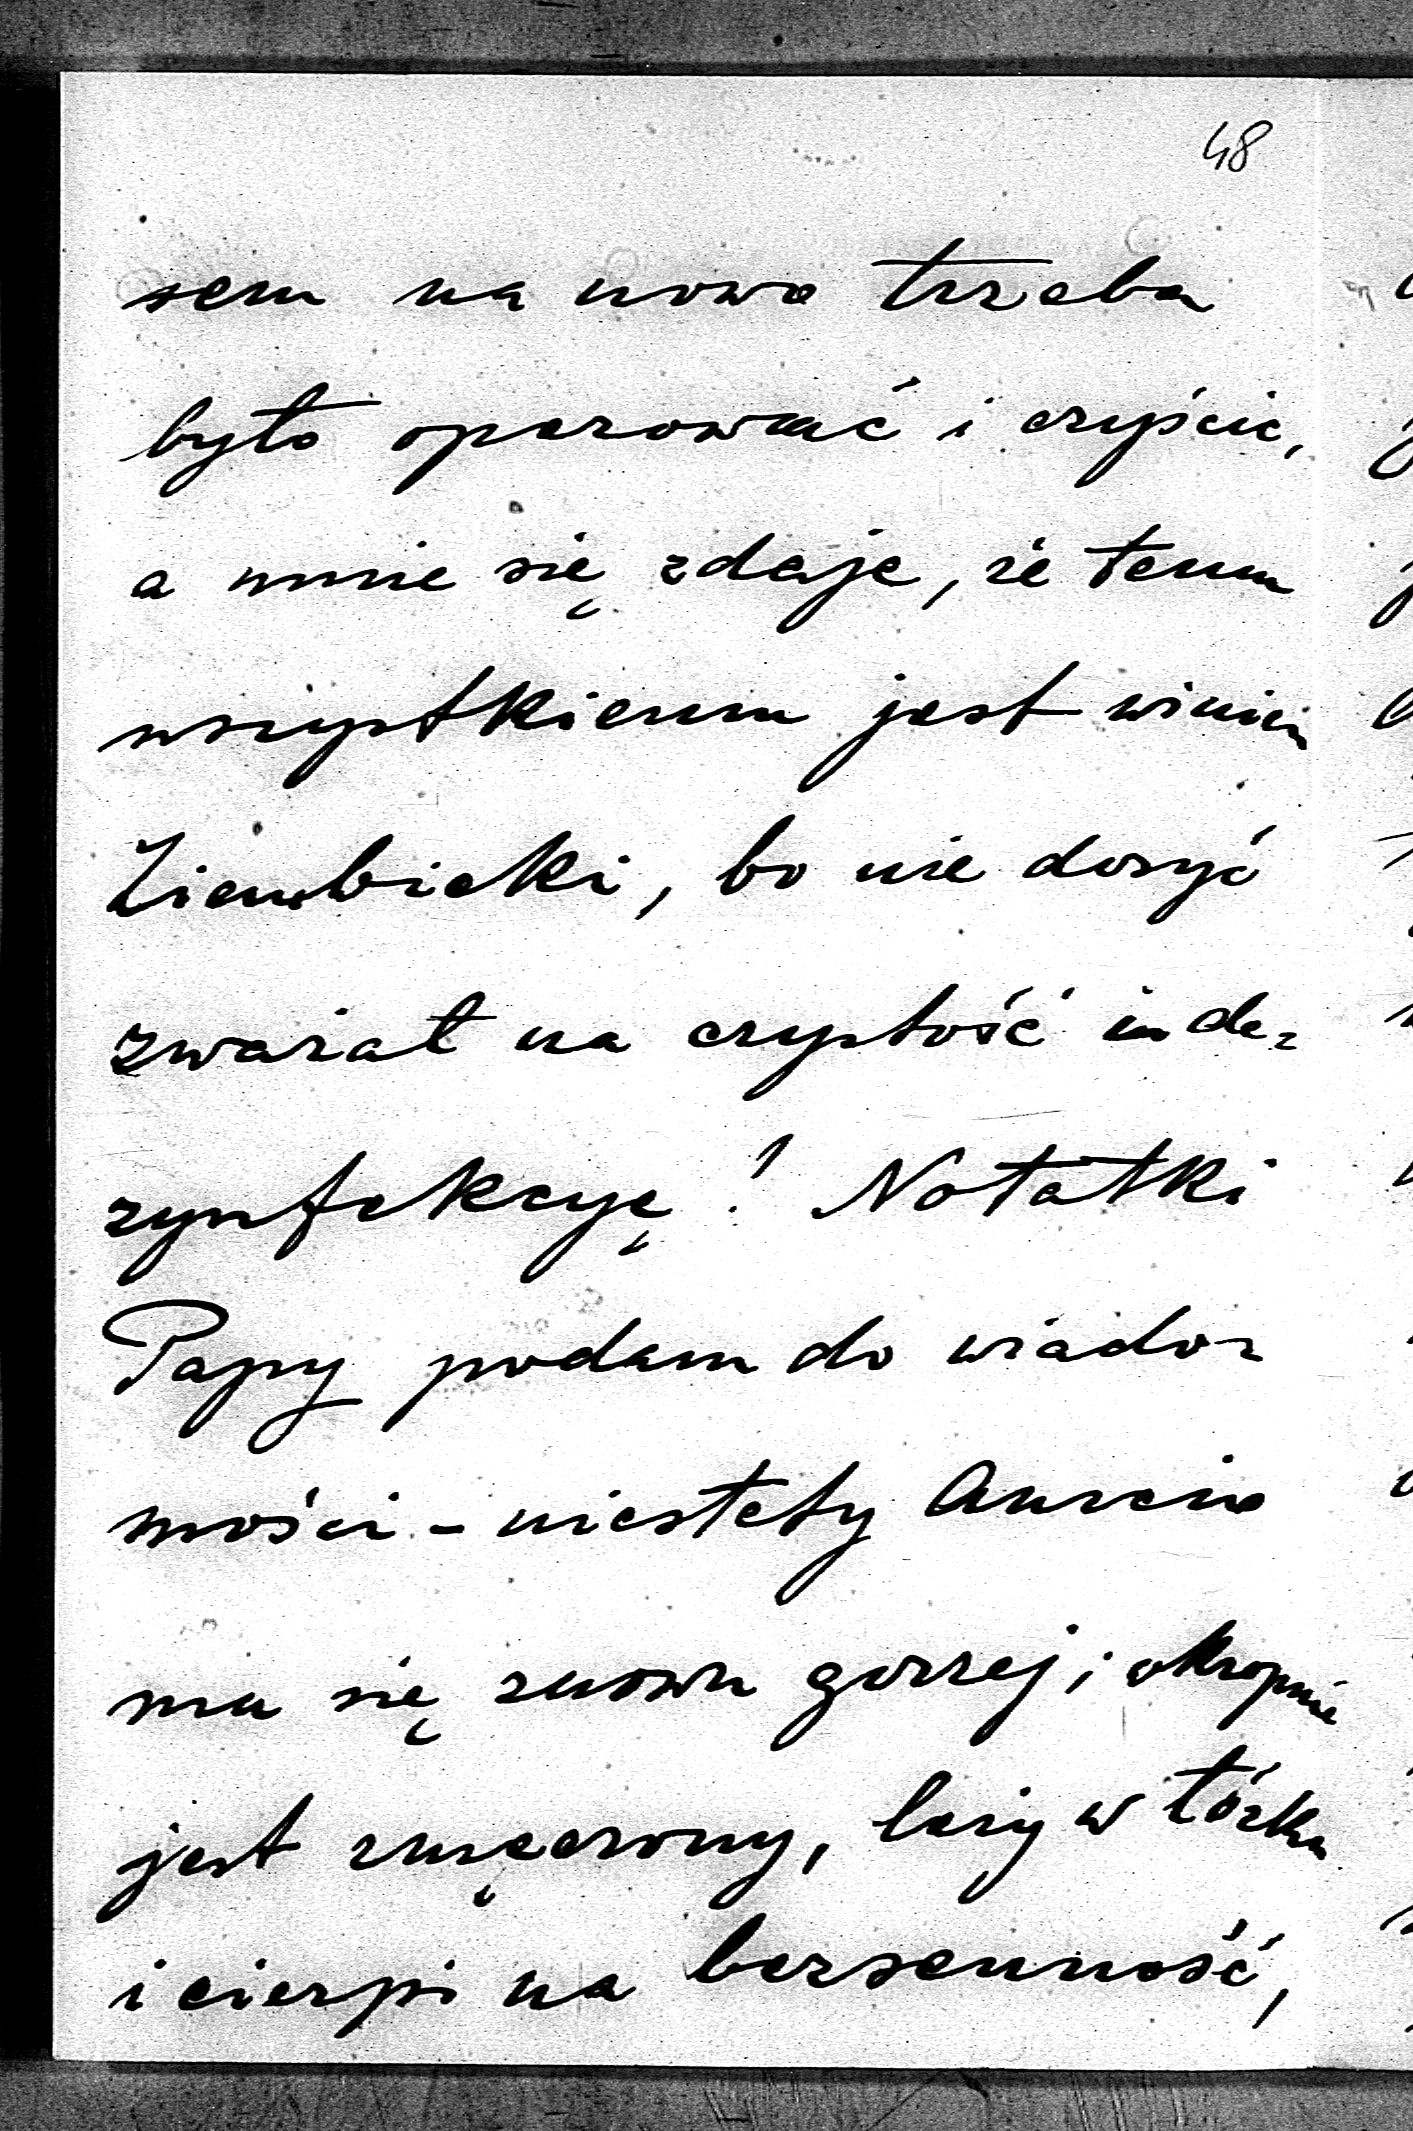 48
sem na nowo trzeba
było operować i czyścić,
a mnie się zdaje, że temu
wszystkiemu jest winien
Ziembicki, bo nie dosyć
zważał na czystość i de-
zynfekcyę! Notatki
Papy podam do wiado-
mości - niestety
ma się znowu gorzej; okropnie
jest zmęczony, leży w łóżku
i cierpi na bezsenność,